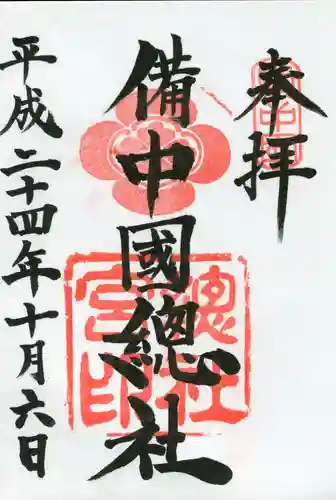 奉拝
備中國總社
平成二十四年十月六日
總社宮印